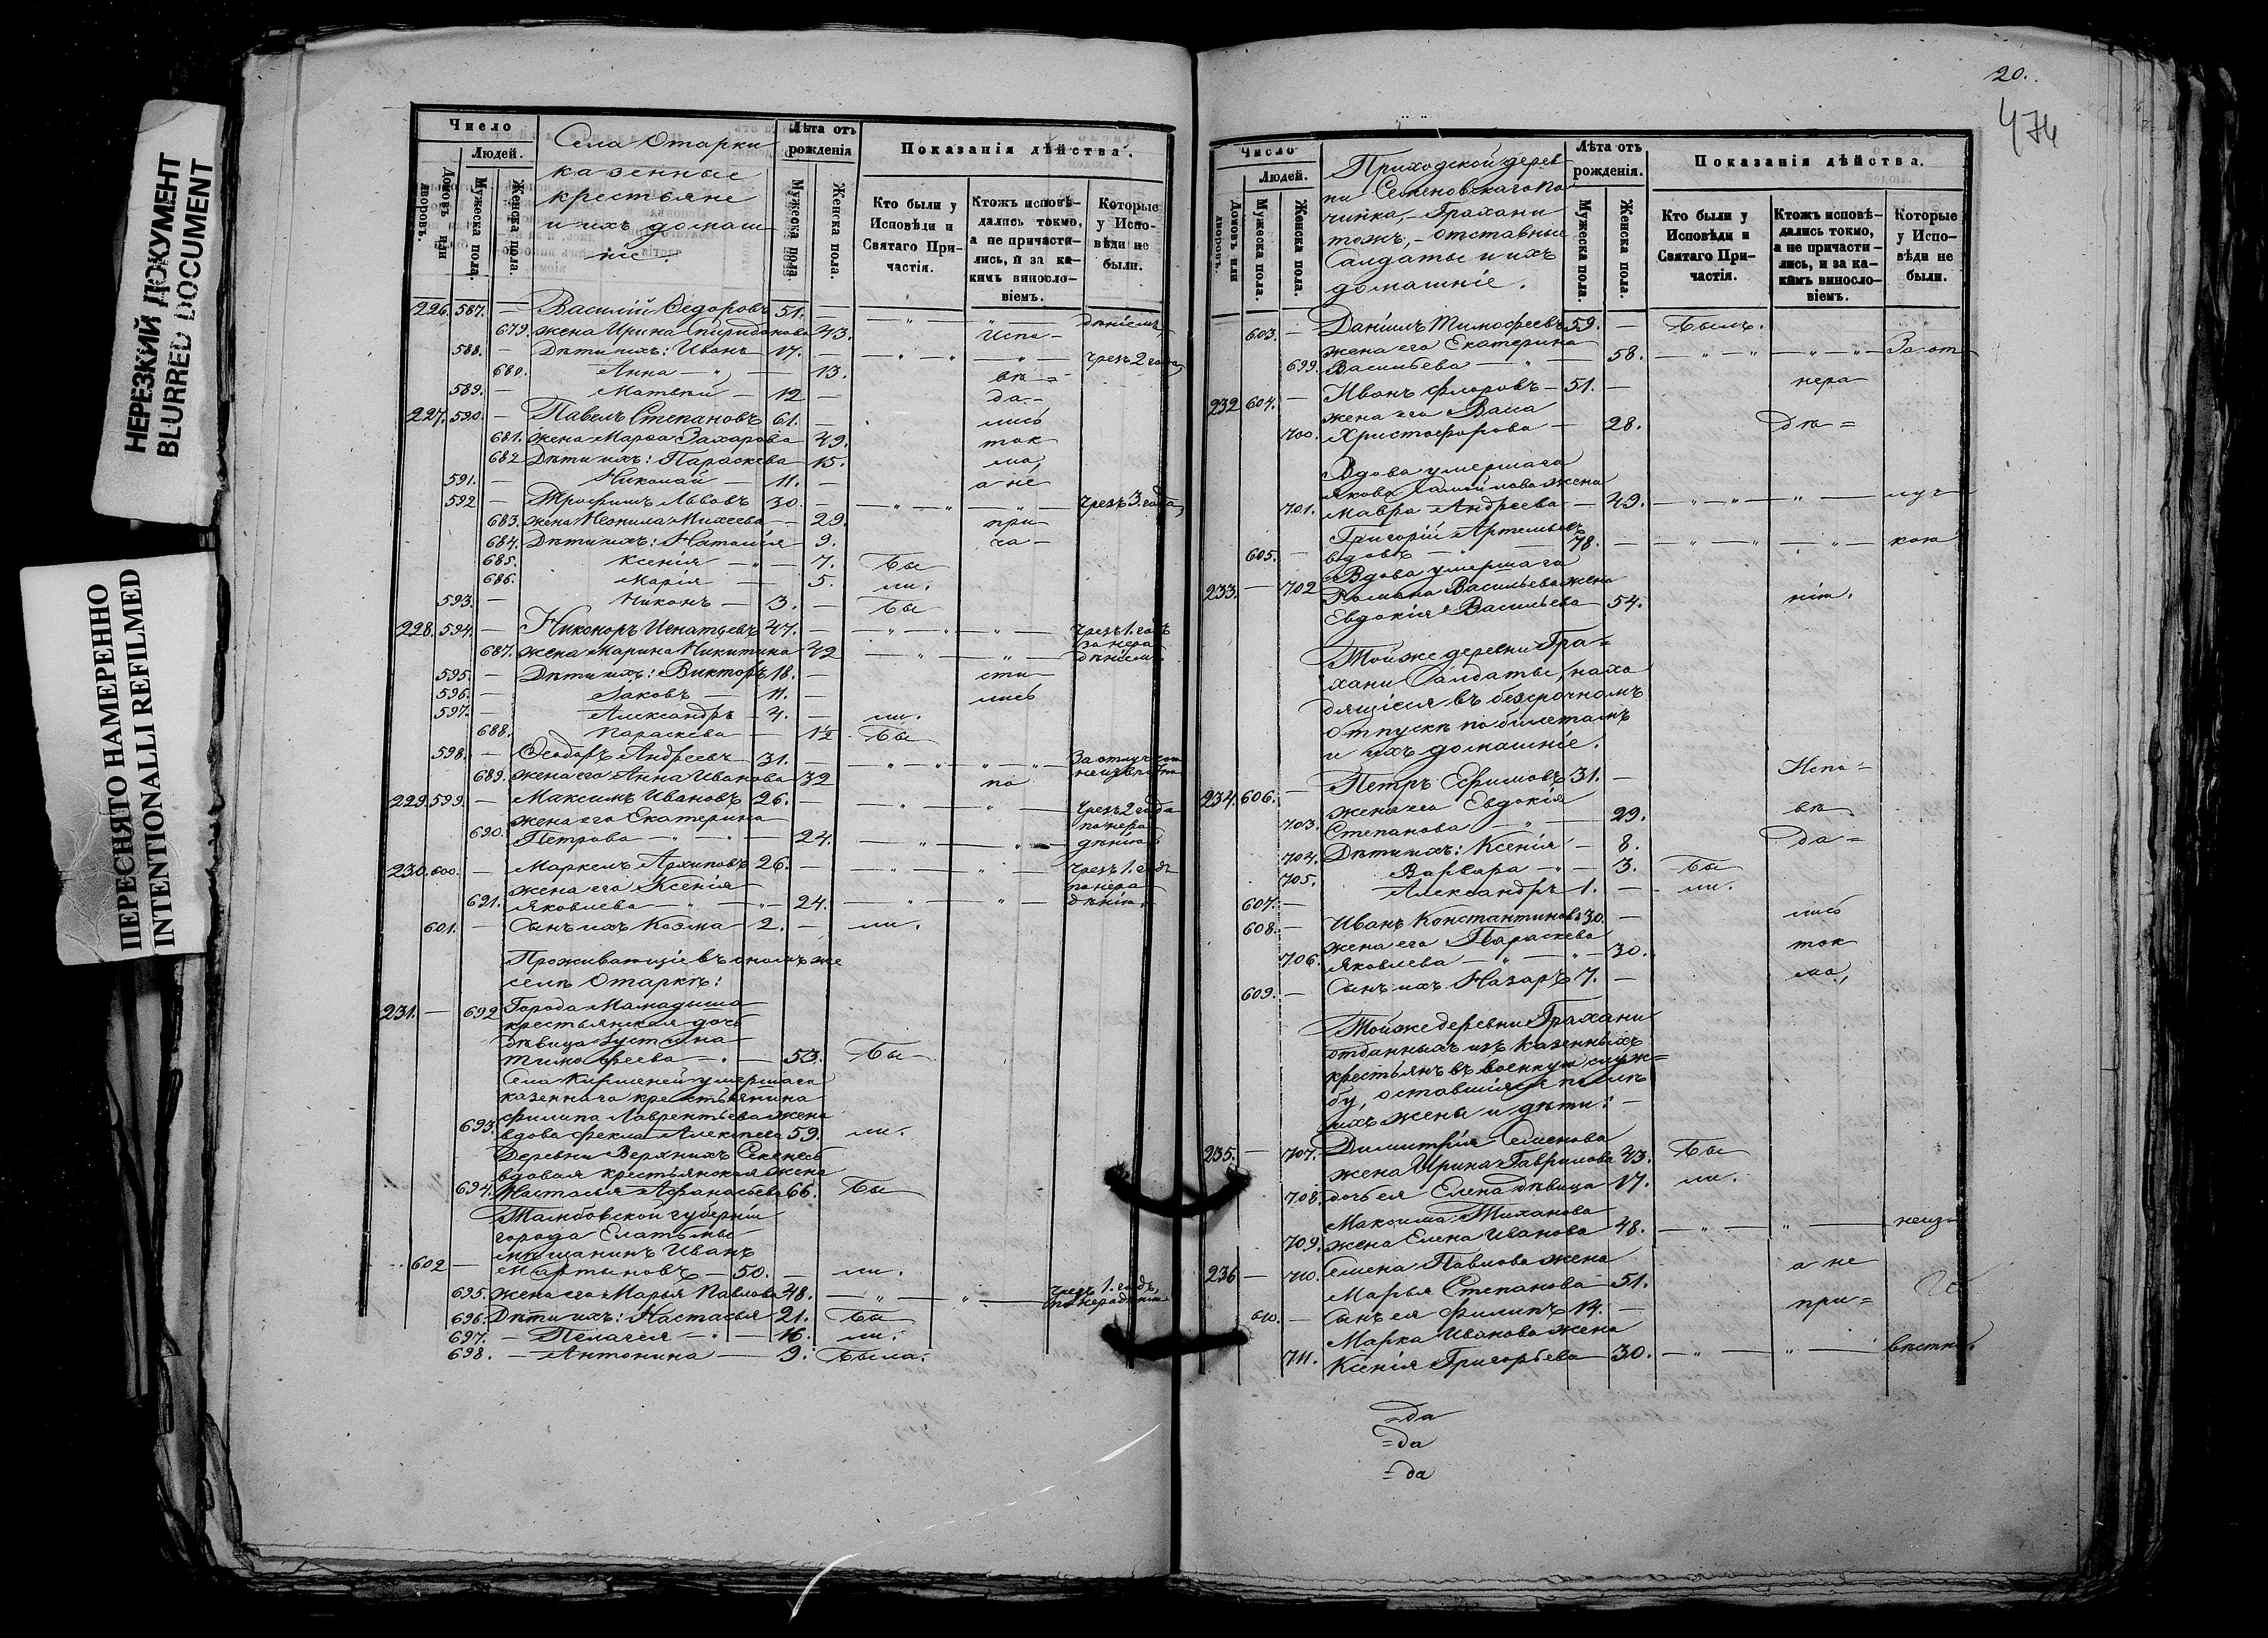 НЕРЕЗКИЙ ДОКУМЕНТ
BLURRED DOCUMENT
ПЕРЕСНЯТО НАМЕРЕННО
INTENTIONALLI REFILMED
Число
Людей.
Домовъ или дворовъ.
Мужеска пола.
Женска пола.
Села Отарки
казенные
крестьяне
и ихъ домаш
ніе.
Лѣта отъ рожденія
Мужеска пола.
Женска пола.
Показанія дѣйства.
Кто были у Исповѣди и Святаго Причастія.
Ктожъ исповѣдались токмо, а не причастились, и за какимъ винословіемъ.
Которые у Исповѣди не были.
226. 587. — Василій Ѳедоровъ 51. —
679. жена Ирина Спиридонова 43. Испо-
588. — Дѣти ихъ: Иванъ — 17. — чрезъ 2 года
680. Анна — 13. вѣ-
589. — Матвей — 12 — да-
227. 590. — Павелъ Степановъ 61. — лись
681. жена Марѳа Захарова — 49. ток
682 Дѣти ихъ: Параскева — 15. мо,
591. — Николай — 11. — а не
592 — Трофимъ Львовъ 30. — чрезъ 3. года
683. жена Неонила Михеева — 29. при-
684. Дѣти ихъ: Наталія 9. ча-
685. Ксенія — 7. бы
686. Марія — 5. ли.
593. — Никонъ — 3. — бы
228. 594. — Никоноръ Игнатьевъ 47. — чрезъ 1. годъ
687. жена Марина Никитина 42 за нера дѣніемъ
595. — Дѣти ихъ: Викторъ 18. — сти
596. — Іаковъ — 11. лись
597. — Александръ — 4. — ли.
688. Параскева — 12 бы
598. — Ѳеодоръ Андреевъ 31. —
689. жена его Анна Иванова 32 по
229. 599. — Максимъ Ивановъ 26. — чрезъ 2 года
жена его Екатерина по нера
690. Петрова — 24. дѣнію
230. 600. — Маркелъ Архиповъ 26. — чрезъ 1. годъ
жена его Ксенія по нера
691. Яковлева — 24. дѣнію.
601. — Сынъ ихъ Козма 2. — ли.
Проживающіе въ ономъ же
селѣ Отаркѣ:
231. — 692 Города Мамадыша
крестьянская дочь
дѣвица Іустина
Тимофеева — 53. бы
Села Кирменей умершаго
казеннаго крестьянина
Филипа Лаврентьева жена
693. вдова Фекла Алексѣева 59. ли.
Деревни Верхнихъ Секенесь
вдовая крестьянская жена
694. Настасья Афанасьева 66. бы
Тамбовской губерніи
города Елатьмы
мѣщанинъ Иванъ
602 — Мартыновъ — 50. — ли.
695. жена его Марья Павлова 48. чрезъ 1. годъ по нерадѣнію
696. Дѣти ихъ: Настасья 21. бы
697. — Пелагея — 16. ли.
698. — Антонина — 9. была.
20.
474
Число
Людей.
Домовъ или дворовъ.
Мужеска пола.
Женска пола.
Приходской дерев
ни Семеновскаго по
чинка, Грахани
тожъ, — отставные
Салдаты и ихъ
домашніе.
Лѣта отъ рожденія.
Мужеска пола.
Женска пола.
Показанія дѣйства.
Кто были у Исповѣди и Святаго Причастія.
Ктожъ исповѣдались токмо, а не причастились, и за какимъ винословіемъ.
Которые у Исповѣди не были.
603. — Даніилъ Тимофеевъ 59. — былъ.
жена его Екатерина
699. Васильева — 58. За от
232 604. — Иванъ Флоровъ — 51. — нера
жена его Васа
700. Христофорова — 28. дѣ=
Вдова умершаго
Якова Самойлова жена
701. Мавра Андреева — 49. луч
Григорій Артемьевъ
605. — вдовъ — 78. — кою
Вдова умершаго
233. — 702 Романа Васильева жена
Евдокія Васильева 54. нію.
Той же деревни Гра=
хани Салдаты, нахо
дящіеся въ безсрочномъ
отпускѣ по билетамъ
и ихъ домашніе.
234. 606. — Петръ Ефимовъ 31. — Испо=
жена его Евдокія
703. Степанова — 29. вѣ
704. Дѣти ихъ: Ксенія — 8. да=
705. Варвара — 3. бы
607. — Александръ 1. — ли.
608. — Иванъ Константиновъ 30. — лись
жена его Параскева
706. Яковлева — 30. ток
609. — Сынъ ихъ Назаръ 7. — мо,
Той же деревни Грахани
отданныхъ изъ казенныхъ
крестьянъ въ военную служ=
бу, оставшіяся послѣ
ихъ жены и дѣти: —
235. — 707. Димитрія Семенова
жена Ирина Гаврилова 43. бы
708. дочь ея Елена дѣвица 17. ли.
Максима Тиханова
709. жена Елена Иванова 48. неиз
236 — 710. Семена Павлова жена а не
Марья Степанова 51.
610. — Сынъ ея Филипъ 14. — при=
Марка Иванова жена
711. Ксенія Григорьева 30. вѣстно.
=да
=да
=да